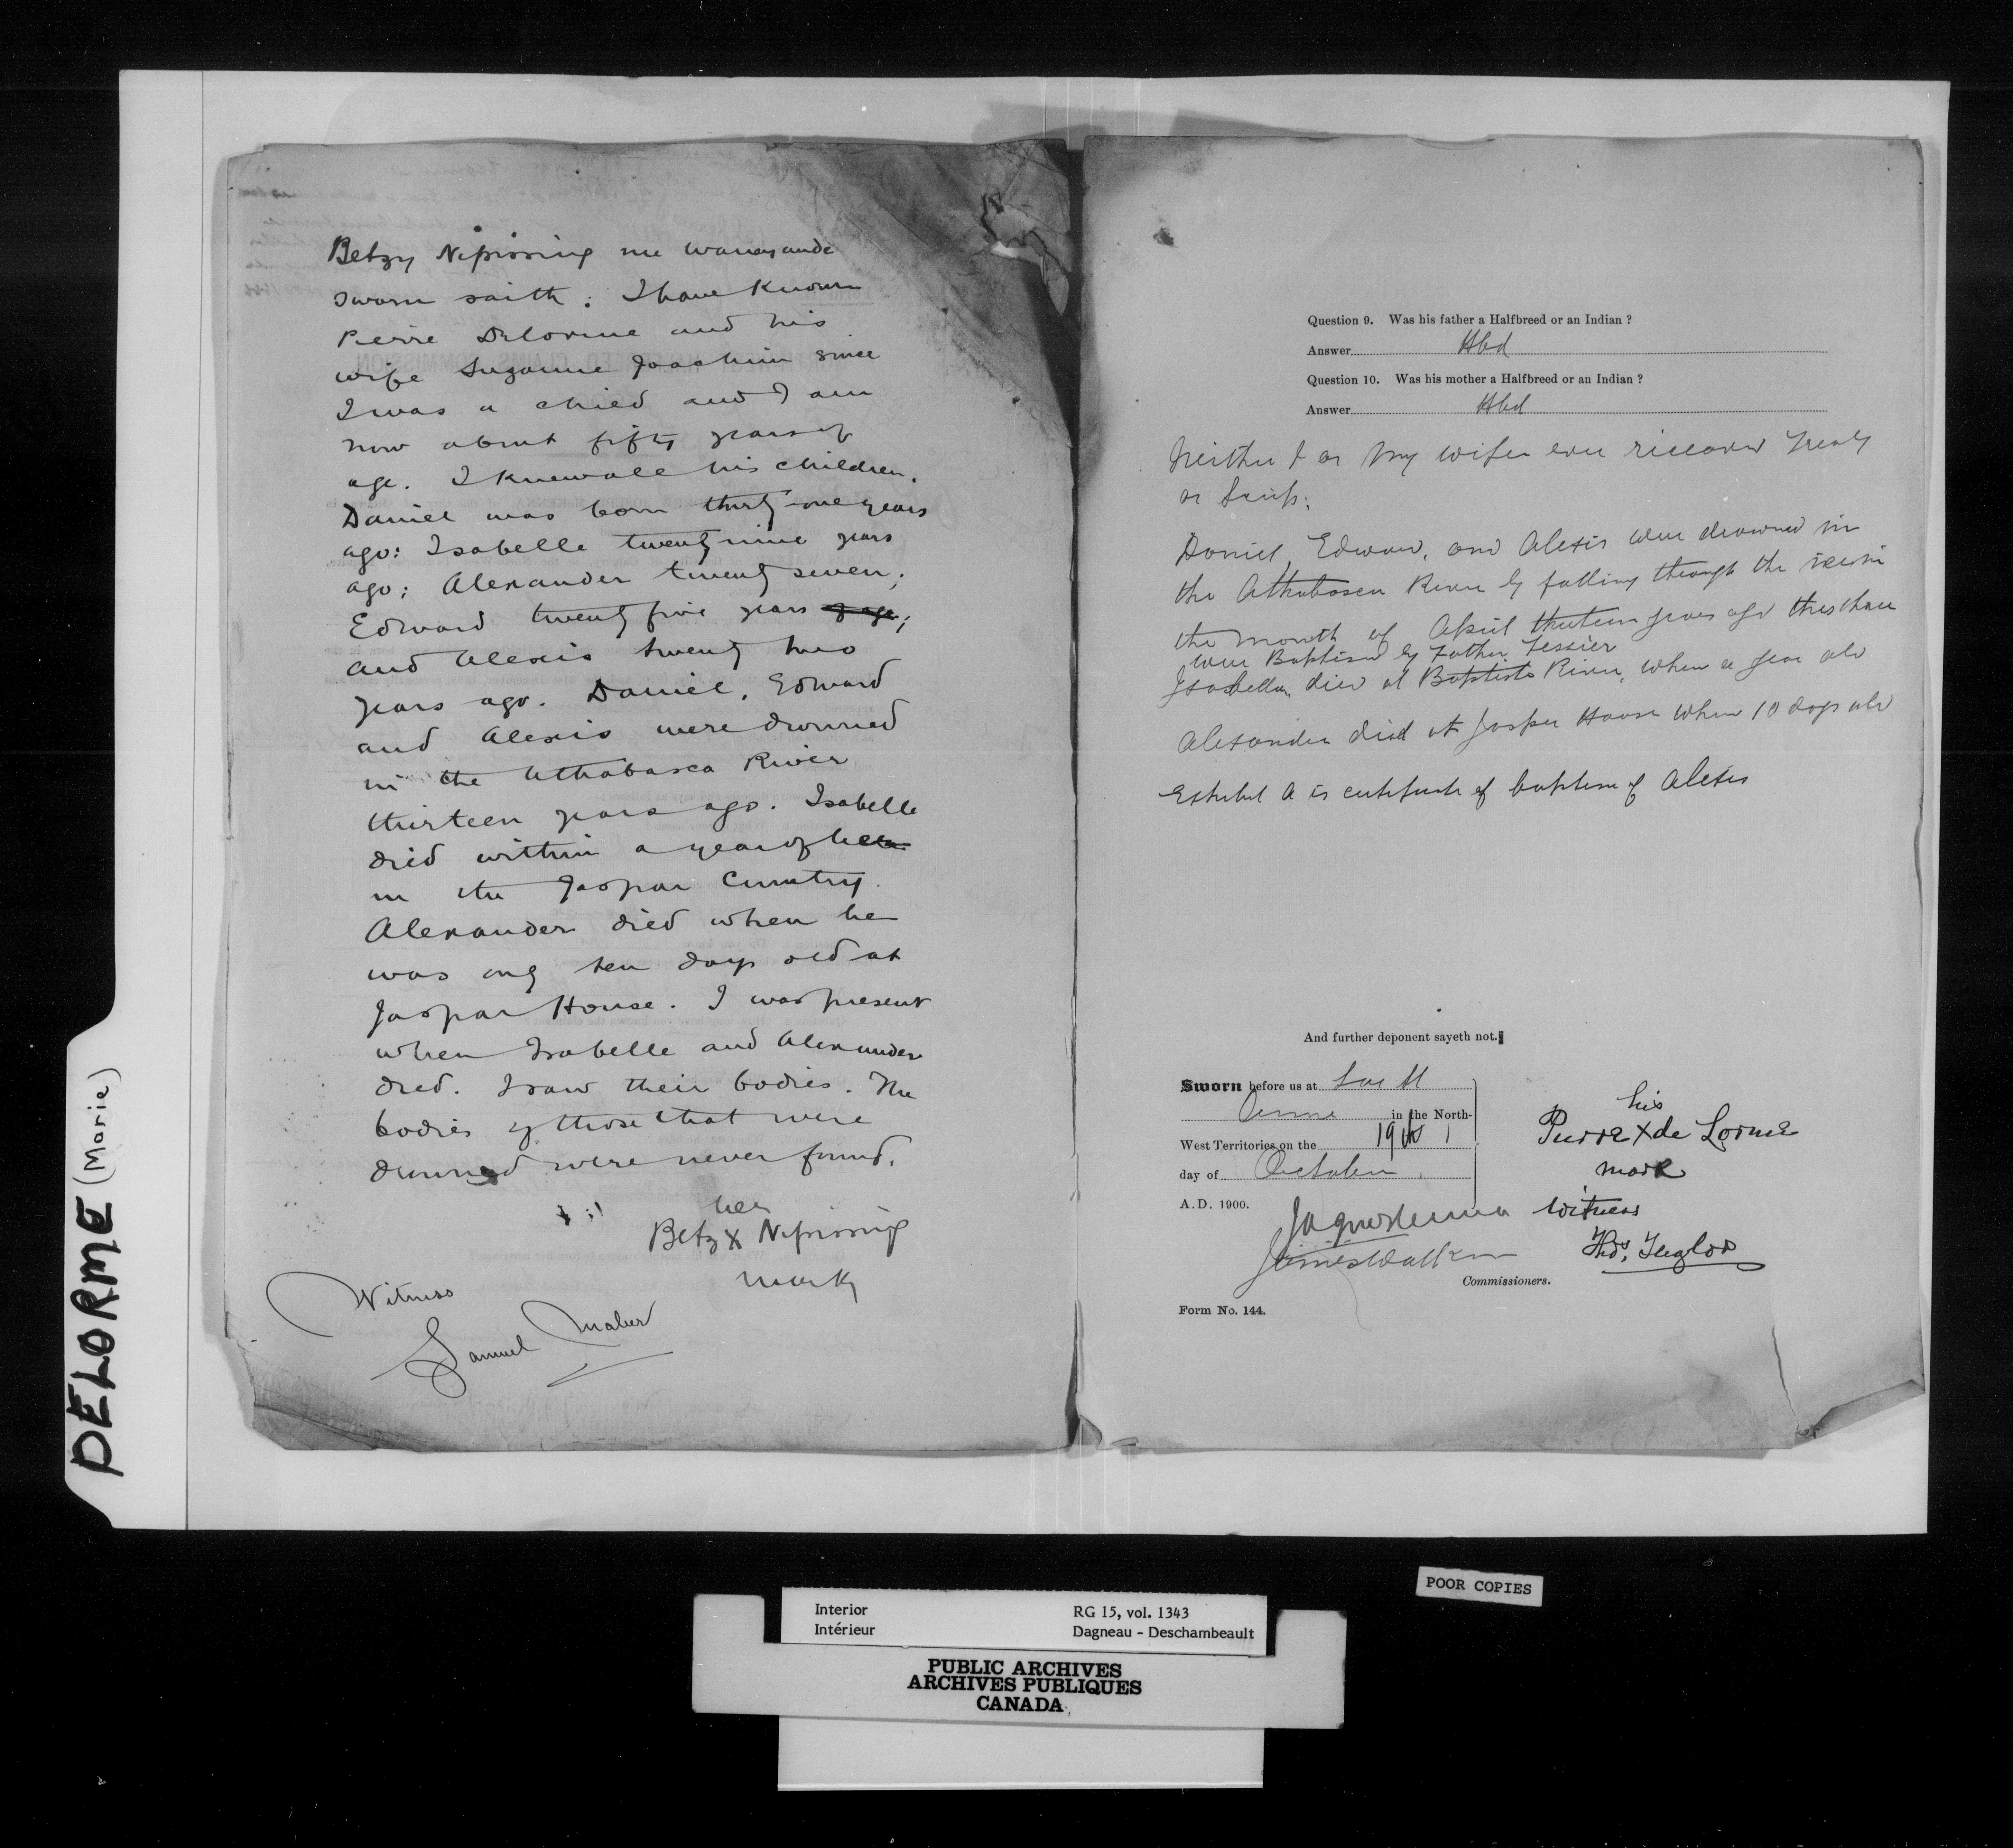 DELORME (Marie)
Betzy Nipissing née
sworn saith: I have known
Pierre Delorme and his
wife Suzanne Joachim since
I was a child and I am
now about fifty years of
age. I knew all his children.
Daniel was born thirty-one years
ago: Isabelle twenty nine years
ago; Alexander twenty seven;
Edward twenty five years of age;
and Alexis twenty two
years ago. Daniel, Edward
and Alexis were drowned
in the Athabasca River
thirteen years ago. Isabelle
died within a year of
in the Jaspar Country.
Alexander died when he
was only ten days old at
Jaspar House. I was present
when Isabelle and Alexander
died. I saw their bodies. The
bodies of those that were
drowned were never found.
her
Betzy X Nipissing
mark
Witness
Samuel Maber
Question 9. Was his father a Halfbreed or an Indian ?
Answer Hbd
Question 10. Was his mother a Halfbreed or an Indian ?
Answer Hbd
Neither I or my wife ever received Treaty
or Scrip.
Daniel, Edward, and Alexis were drowned in
the Athabasca River by falling through the ice in
the month of April thirteen years ago these three
were Baptised by Father Tessier
Isabella, died at Baptiste River, when a year old
Alexander died at Jasper House when 10 days old
Exhibit A is certificate of baptism of Alexis
And further deponent sayeth not.
Sworn before us at Lac St
Anne in the North-
West Territories on the 19th
day of October
A.D. 1900.
his
Pierre X de Lorme
mark
witness
James Walker
Commissioners.
Form No. 144.
POOR COPIES
Interior RG 15, vol. 1343
Intérieur Dagneau - Deschambeault
PUBLIC ARCHIVES
ARCHIVES PUBLIQUES
CANADA